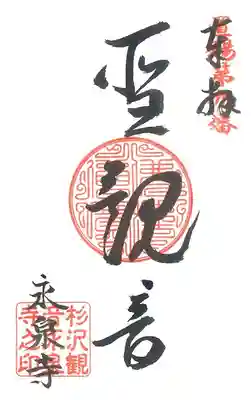 奉拝
聖観音
永泉寺
杉沢観
音永泉
寺之印